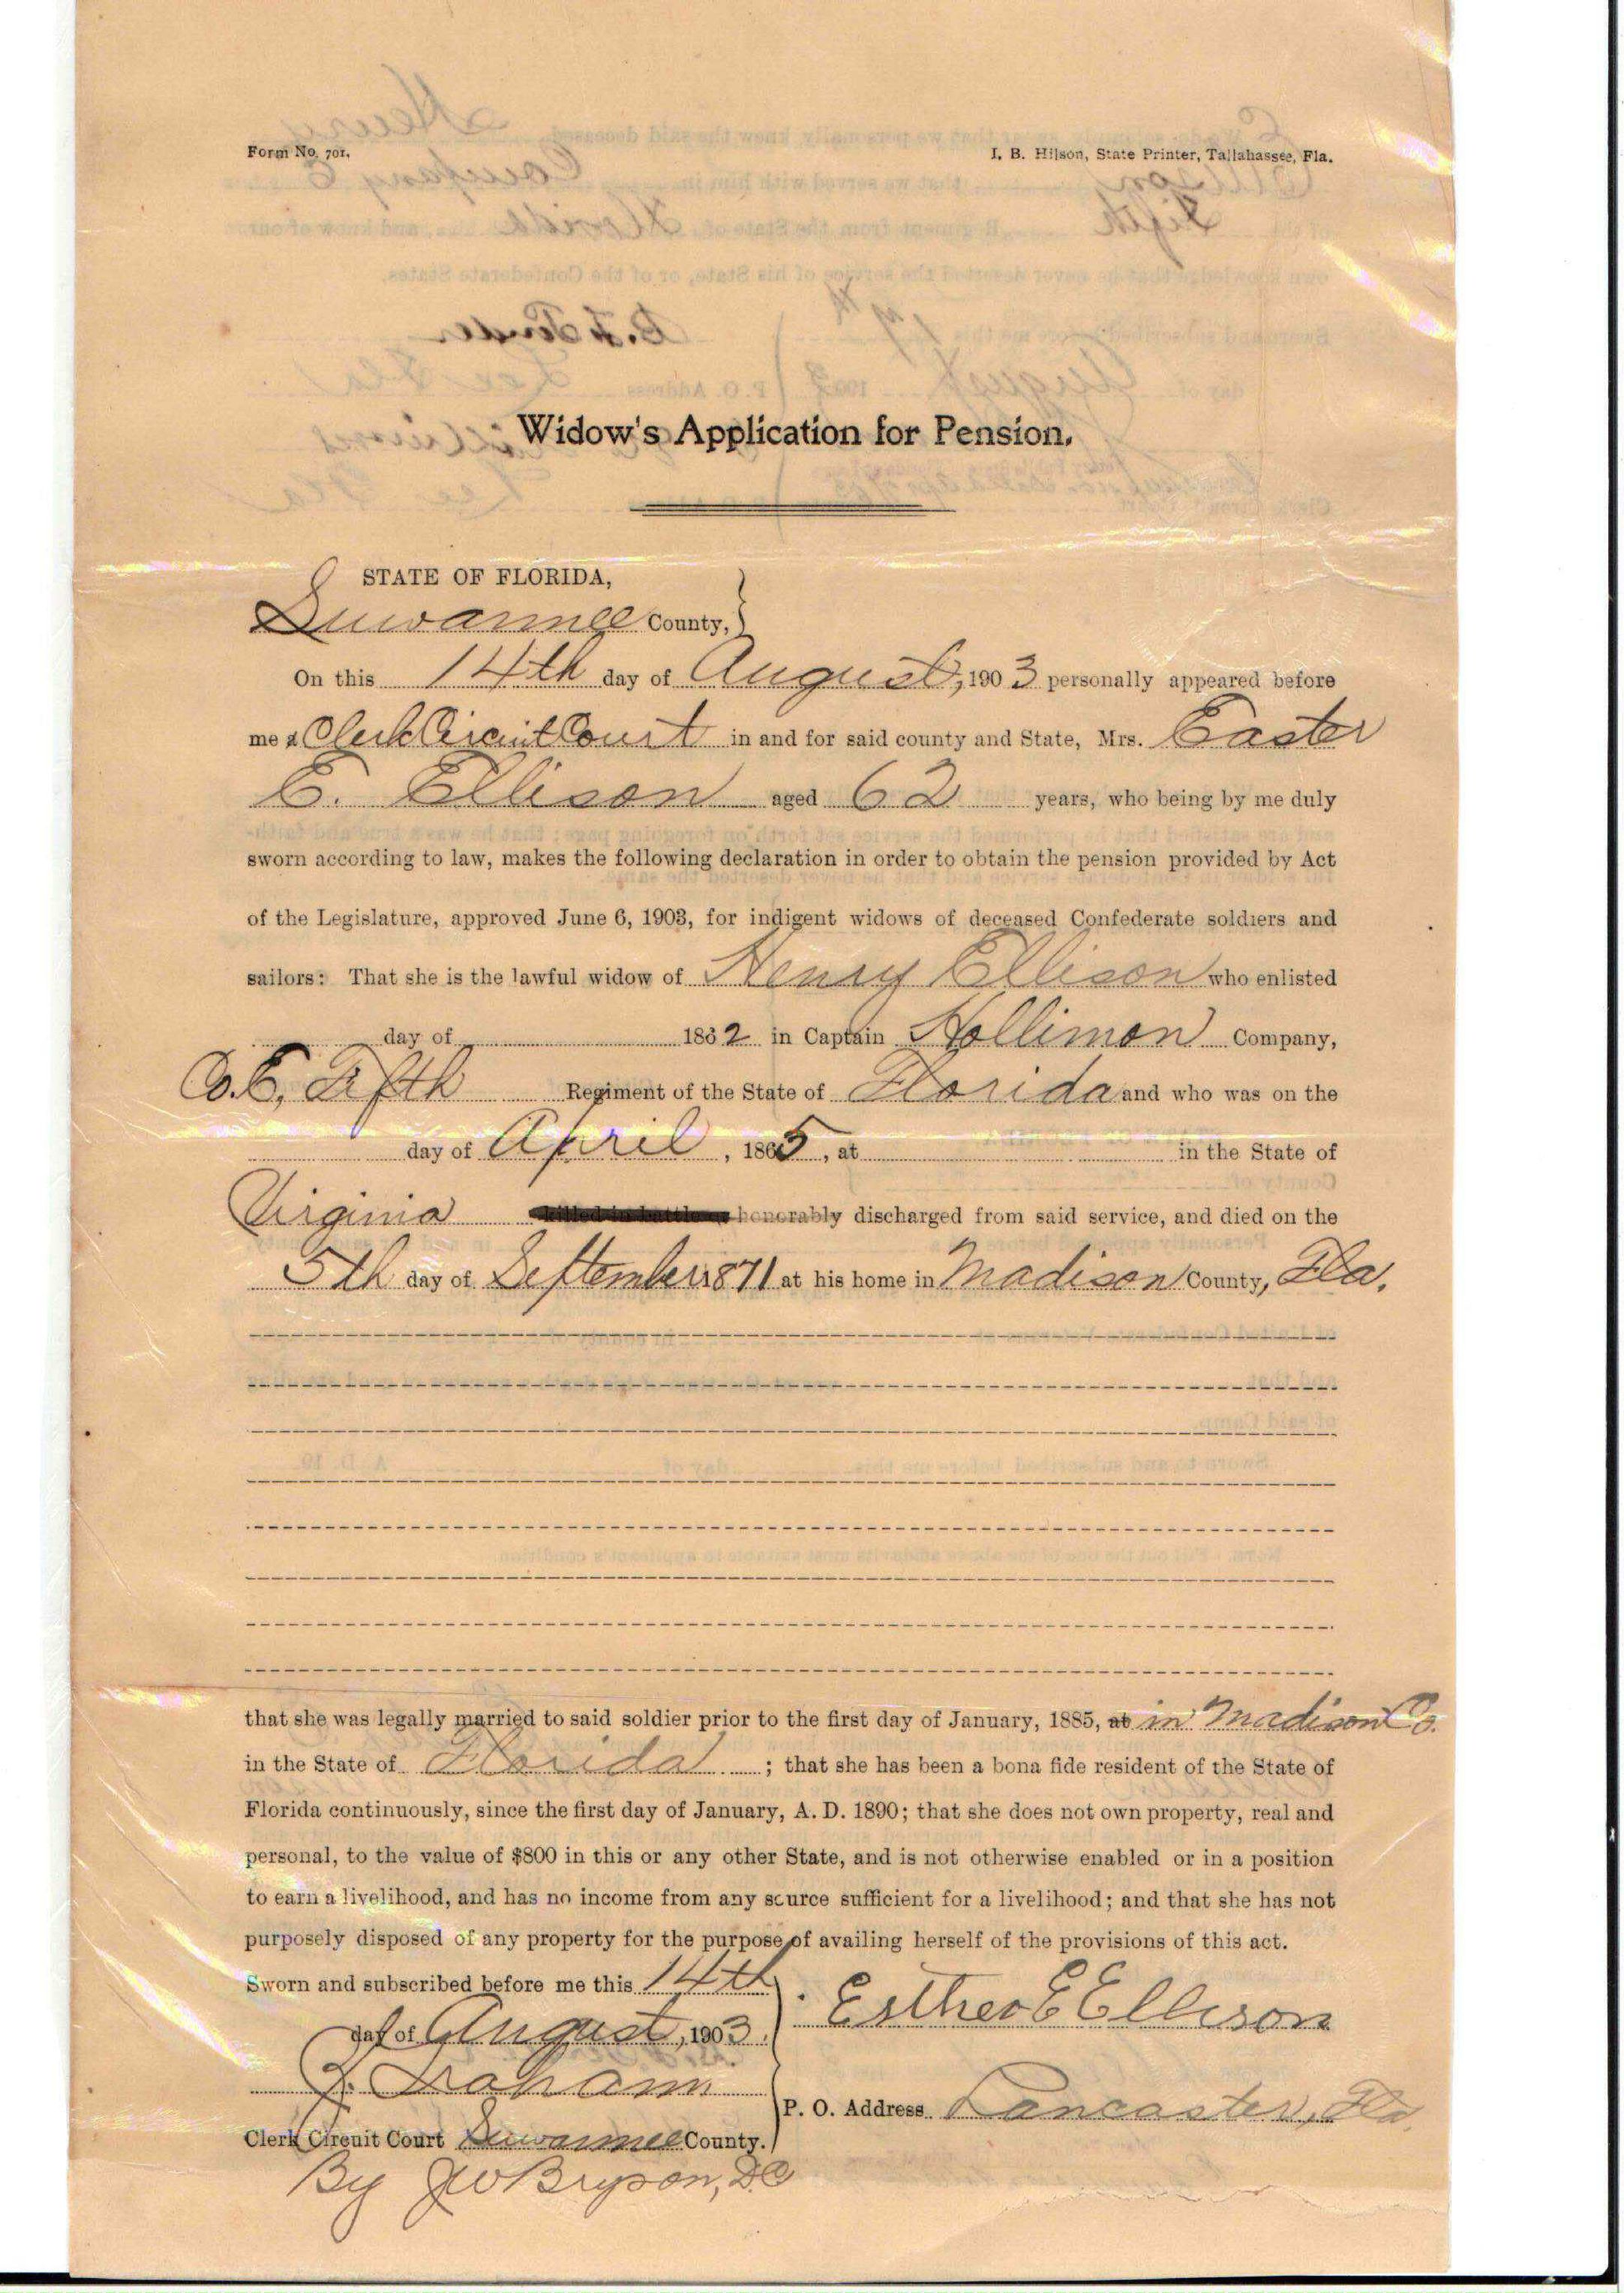 Form No. 701.
I. B. Hilson, State Printer, Tallahassee, Fla.
Widow's Application for Pension.
STATE OF FLORIDA,
Suwannee County,
On this 14th day of August, 1903 personally appeared before
me a Clerk Circuit Court in and for said county and State, Mrs. Easter
E. Ellison aged 62 years, who being by me duly
sworn according to law, makes the following declaration in order to obtain the pension provided by Act
of the Legislature, approved June 6, 1903, for indigent widows of deceased Confederate soldiers and
sailors: That she is the lawful widow of Henry Ellison who enlisted
day of 1862 in Captain Hollimon Company,
Co. E, Fifth Regiment of the State of Florida and who was on the
day of April, 1865, at in the State of
Virginia killed in battle or honorably discharged from said service, and died on the
5th day of September 1871 at his home in Madison County, Fla.
that she was legally married to said soldier prior to the first day of January, 1885, at in Madison Co.
in the State of Florida; that she has been a bona fide resident of the State of
Florida continuously, since the first day of January, A. D. 1890; that she does not own property, real and
personal, to the value of $800 in this or any other State, and is not otherwise enabled or in a position
to earn a livelihood, and has no income from any source sufficient for a livelihood; and that she has not
purposely disposed of any property for the purpose of availing herself of the provisions of this act.
Sworn and subscribed before me this 14th
day of August, 1903.
Esther E Ellison
P. O. Address Lancaster, Fla
Clerk Circuit Court Suwannee County.
By J W Bryson, D.C